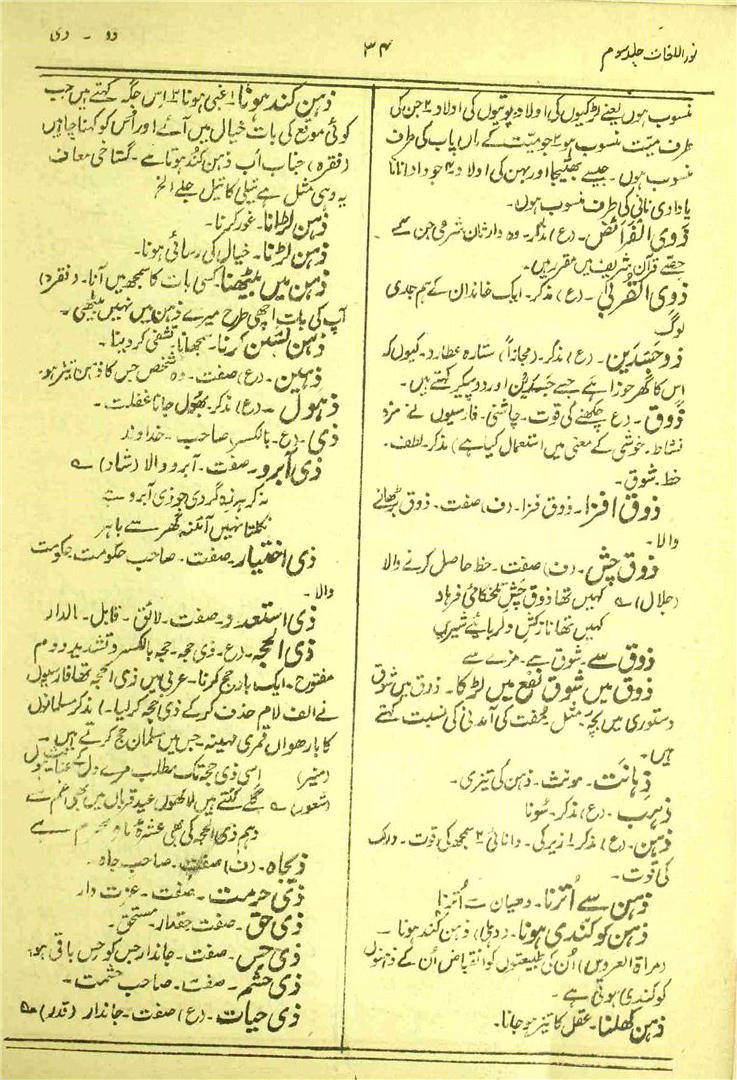 نور اللغات جلد سوم
۳۴
ذو - ذی
منسوب ہوں یعنے لڑکیوں کی اولاد پوتیوں کی اولاد ۲ جن کی
طرف میّت منسوب ہو ۳ جو میّت کے ماں باپ کی طرف
منسوب ہوں۔ جیسے بھتیجا اور بہن کی اولاد ۴ جو دادا نانا
یا دادی نانی کی طرف منسوب ہوں۔
ذَوِی الْفَرائِض۔ (ع) مذکر۔ وہ وارثان شرعی جن کے
حصّے قرآن شریف میں مقرر ہیں۔
ذَوِی الْقُرْبیٰ۔ (ع) مذکر۔ ایک خاندان کے ہم جدی
لوگ
ذوجسدین۔ (ع) مذکر۔ (مجازاً) ستارہ عطارد۔ کیوں کہ
اس کا گھر جوزا ہے جسے جسدین اور دو پیکر کہتے ہیں۔
ذَوق۔ (ع) چکھنے کی قوت۔ چاشنی۔ فارسیوں نے مزہ
نشاط۔ خوشی کے معنی میں استعمال کیا ہے) مذکر۔ لطف۔
حظ۔ شوق۔
ذوق افزا۔ ذوق فزا۔ (ف) صفت۔ ذوق بڑھانے
والا۔
ذوق چش۔ (ف) صفت۔ حظ حاصل کرنے والا
(جلال) ؎ کہیں تھا ذوق چش تلخکامی فرہاد
کہیں تھا نازکش دلربائے شیریں
ذوق سے۔ شوق سے۔ مزے سے
ذوق میں شوق نفع میں لڑکا۔ ذوق میں شوق
دستوری میں بچّہ مثل مفت کی آمدنی کی نسبت کہتے
ہیں۔
ذِہانَت۔ مونث۔ ذہن کی تیزی۔
ذہب۔ (ع) مذکر۔ سونا
ذہن۔ (ع) مذکر ۱ زیرکی۔ دانائی ۲ سمجھ کی قوت۔ درک
کی قوت۔
ذہن سے اُترنا۔ دھیان سے اُترنا
ذہن کو کندی ہونا۔ (دہلی) ذہن کند ہونا۔
(مراۃ العروس) اُن کی طبیعتوں کو انقباض اُن کے ذہنوں
کو کندی ہوتی ہے۔
ذہن کھلنا۔ عقل کا تیز ہو جانا۔
ذہن کُند ہونا ۱ غبی ہونا ۲ اس جگہ کہتے ہیں جب
کوئی موقع کی بات خیال میں آئے اور اُس کو کہنا چاہیں
(فقرہ) جناب اب ذہن کند ہوتا ہے۔ گستاخی معاف
یہ وہی مثل ہے تیلی کا تیل جلے الخ
ذہن لڑانا۔ غور کرنا۔
ذہن لڑنا۔ خیال کی رسائی ہونا۔
ذہن میں بیٹھنا۔ کسی بات کا سمجھ میں آنا۔ (فقرہ)
آپ کی بات اچھی طرح میرے ذہن میں نہیں بیٹھی۔
ذہن نشین کرنا۔ سمجھانا۔ تشفی کر دینا۔
ذہین۔ (ع) صفت۔ وہ شخص جس کا ذہن تیز ہو۔
ذہول۔ (ع) مذکر۔ بھُول جانا غفلت۔
ذی۔ (ع۔ بالکسر) صاحب۔ خداوند
ذی آبرو۔ صفت۔ آبرو والا (شاد) ؎
نہ کر ہرزہ گردی جو ذی آبرو ہے
نکلتا نہیں آئنہ گھر سے باہر
ذی اختیار۔ صفت۔ صاحب حکومت۔ حکومت
والا۔
ذی استعداد۔ صفت۔ لائق۔ قابل۔ مالدار
ذی الحجہ۔ (ع۔ ذی حجہ۔ حجہ بالکسر و تشدید دوم
مفتوح۔ ایک بار حج کرنا۔ عربی میں ذی الحجہ تھا فارسیوں
نے الف لام حذف کر کے ذی حجہ کر لیا۔) مذکر مسلمانوں
کا بارھواں قمری مہینہ۔ جس میں مسلمان حج کرتے ہیں۔
(منیر) اسی ذی حجہ تک مطلب مرے دل کے
(شعور) ؎ گلے کٹتے ہیں لاکھوں عید قرباں میں بھی غم سے
دہم ذی الحجہ کی بھی عشرۂ ماہ محرم ہے
ذیجاہ۔ (ف) صفت۔ صاحب جاہ۔
ذی حرمت۔ صفت۔ عزت دار
ذی حق۔ صفت حقدار۔ مستحق۔
ذی حس۔ صفت۔ جاندار جس کو حس باقی ہو۔
ذی حشم۔ صفت۔ صاحب حشمت۔
ذی حیات۔ (ع) صفت۔ جاندار (قدر) ؎